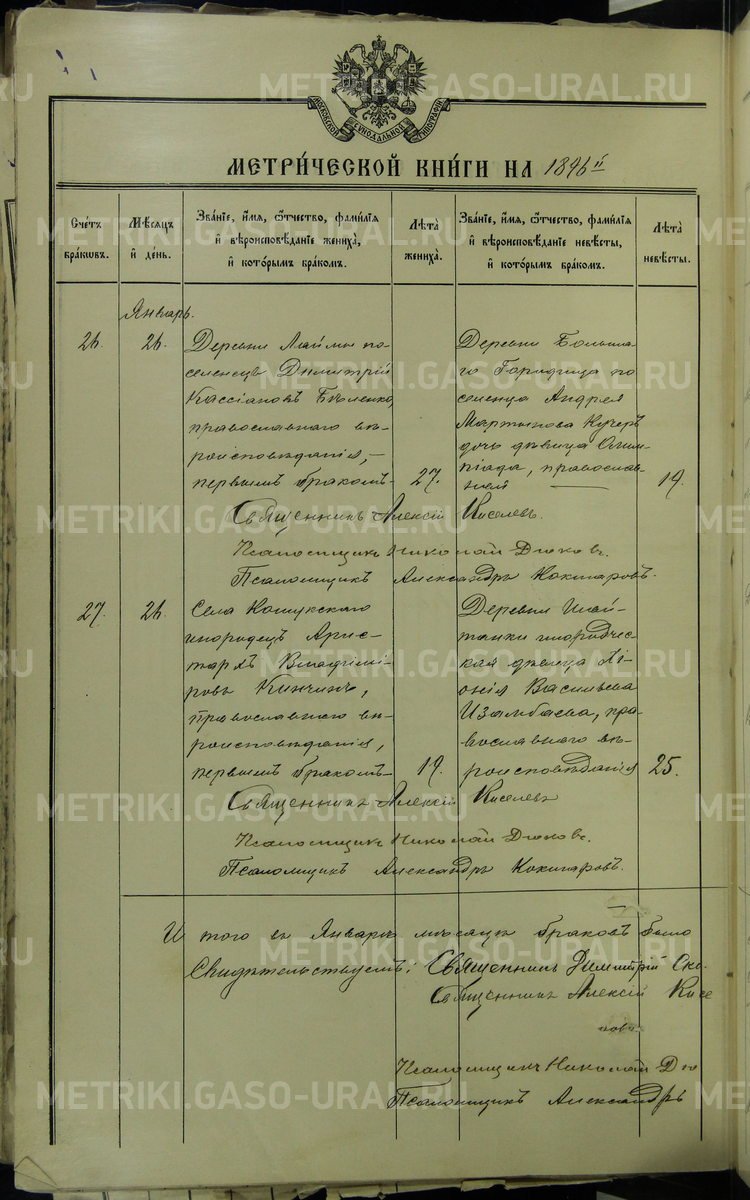 МОСКОВСКОЙ СѴНОДАЛЬНОЙ ТИПОГРАФІИ
МЕТРИ́ЧЕСКОЙ КНИ́ГИ НА 1896 й
Сче́тъ бра́кωвъ.
Мѣ́сяцъ и҆ де́нь.
Зва́нїе, и҆́мя, ѻ҆́тчество, фами́лїя и҆ вѣроисповѣ́данїе жениха̀, и҆ кото́рымъ бра́комъ.
Лѣ́та жениха̀.
Зва́нїе, и҆́мя, ѻ҆́тчество, фами́лїя и҆ вѣроисповѣ́данїе невѣ́сты, и҆ кото́рымъ бра́комъ.
Лѣ́та невѣ́сты.
Январь.
26. 26.
Деревни Лаймы по
селенецъ Димитрій
Кассіановъ
православнаго вѣ
роисповѣданія,
первымъ бракомъ
27.
Деревни Больша
го Городища по
селенца Андрея
Мартынова Кучеръ
дочь дѣвица Олим
піада, православ
ная
19.
Священникъ Алексій Киселевъ.
Псаломщикъ Николай Дюковъ.
Псаломщикъ Александръ Кокшаровъ.
27. 26.
Села Кошукскаго
инородецъ Арис
тархъ Владимі
ровъ Кинчинъ,
православнаго вѣ
роисповѣданія,
первымъ бракомъ
19.
Деревни Шай
танки инородчес
кая дѣвица Хі
онія Васильева
Изамбаева, пра
вославнаго вѣ
роисповѣданія
25.
Священникъ Алексій Киселевъ
Псаломщикъ Николай Дюковъ.
Псаломщикъ Александръ Кокшаровъ.
Итого въ Январѣ мѣсяцѣ браковъ было
Свидѣтельствуемъ: Священникъ Димитрій
Священникъ Алексій Кисе
левъ
Псаломщикъ Николай Дю
Псаломщикъ Александръ
METRIKI.GASO-URAL.RU